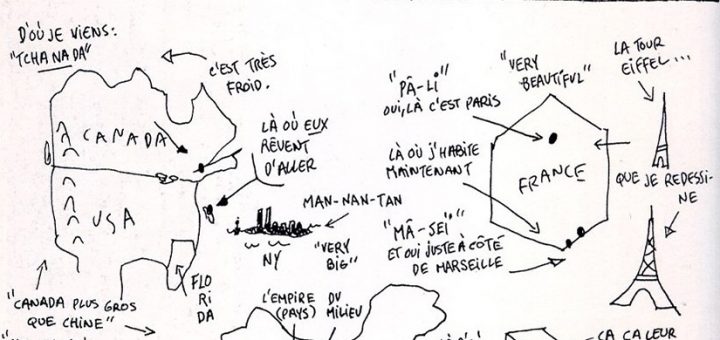 D'OÙ JE VIENS:
"TCHANADA"
C'EST TRÈS
FROID.
CANADA
LÀ OÙ EUX
RÊVENT
D'ALLER
USA
MAN-NAN-TAN
NY
"VERY
BIG"
FLO
RI
DA
"CANADA PLUS GROS
QUE CHINE"
"PÂ-LI"
OUI, LÀ C'EST PARIS
"VERY
BEAUTIFUL"
LA TOUR
EIFFEL...
LÀ OÙ J'HABITE
MAINTENANT
FRANCE
QUE JE REDESSI-
NE
"MÂ-SEÏ"
ET OUI JUSTE À CÔTÉ
DE MARSEILLE
L'EMPIRE DU
(PAYS) MILIEU
ÇA CALEUR